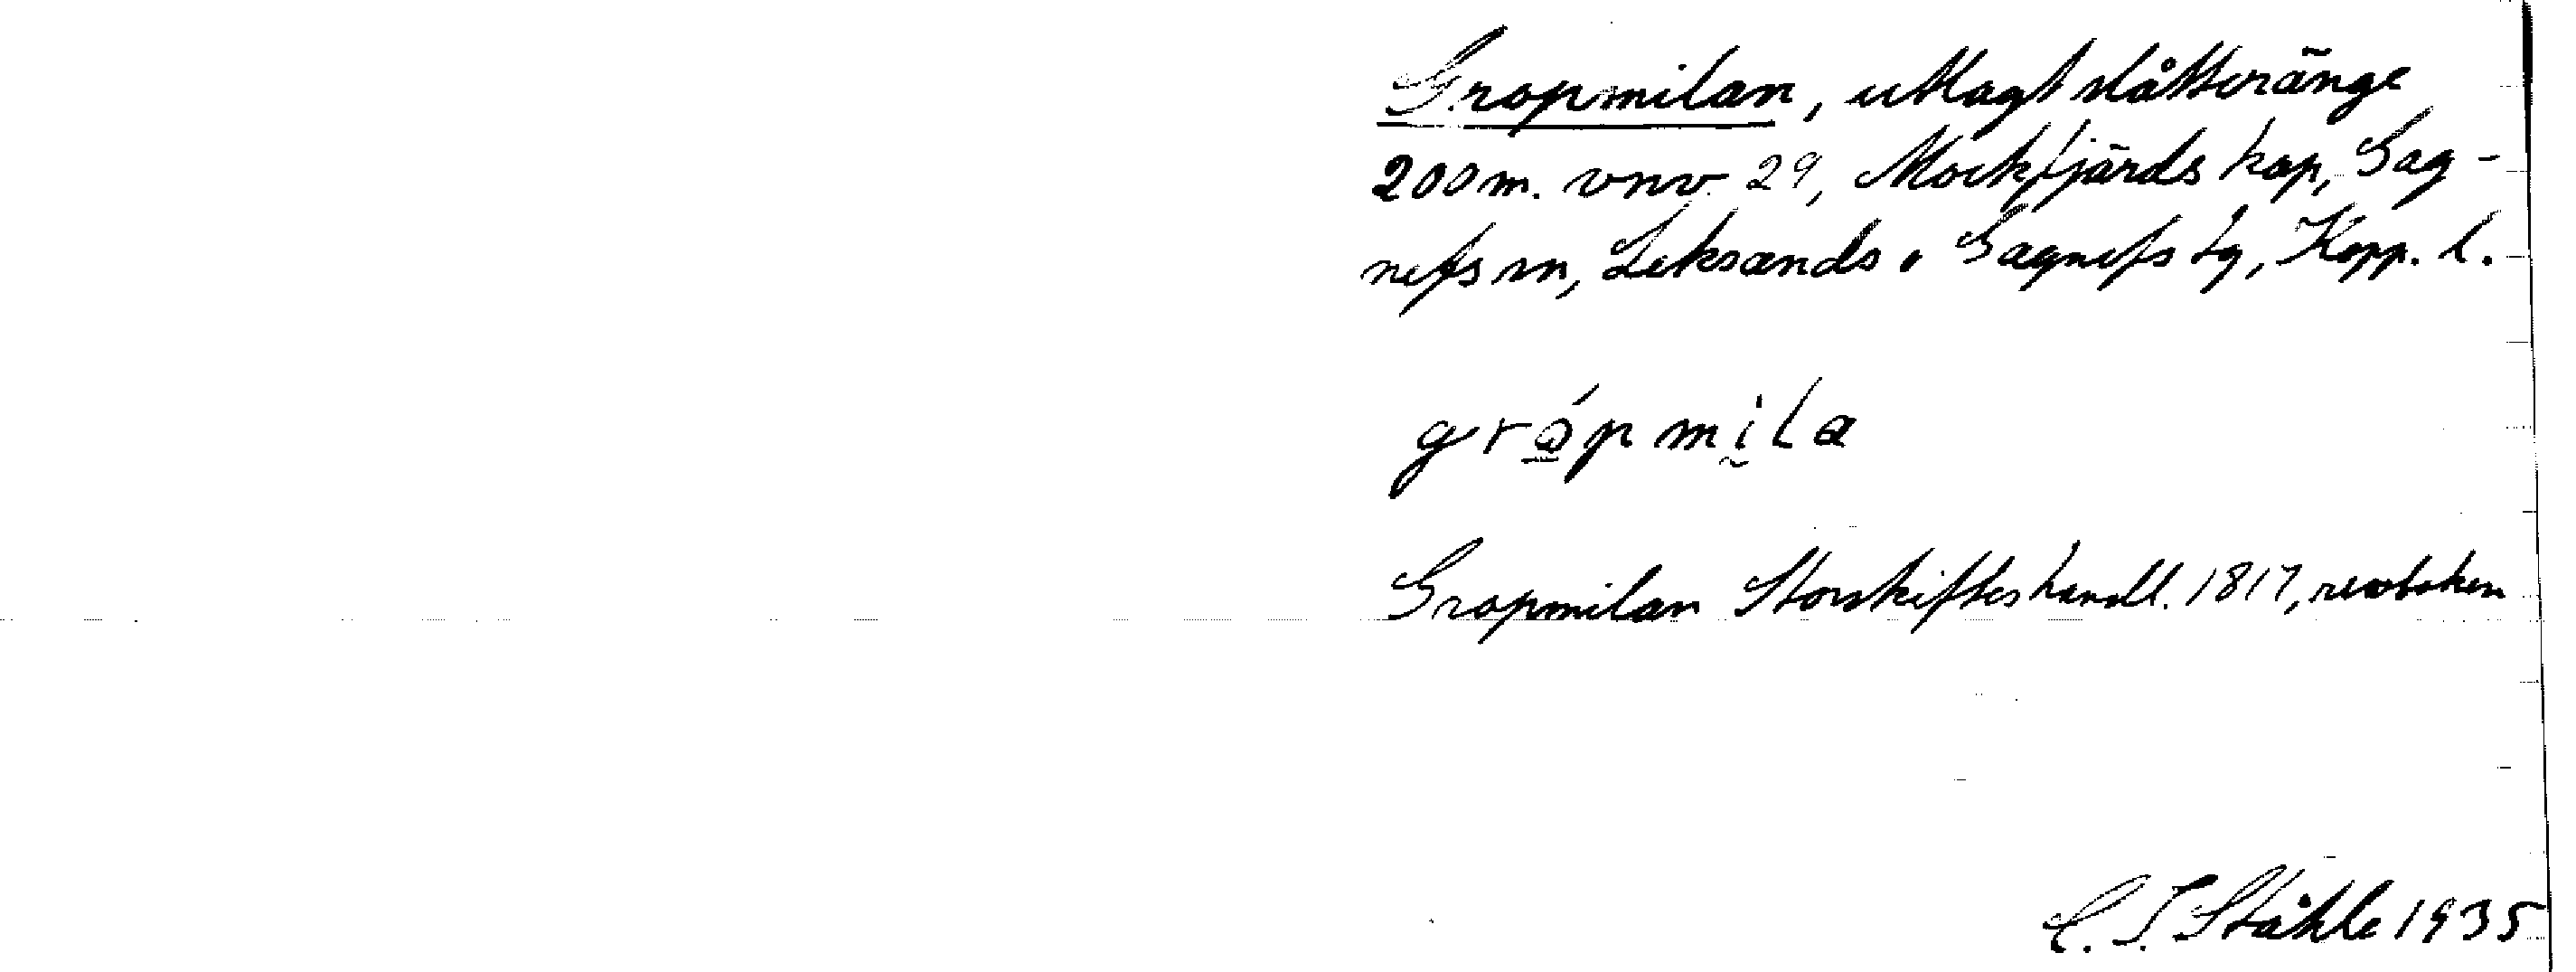 Gropmilan, utlagt slåtteränge
200 m. vnv. 29, Mockfjärds kap, Gag-
nefs sn, Leksands o Gagnefs tg, Kopp. l.
grópmila
Gropmilan Storskifteshandl. 1817, revboken
C. I. Ståhle 1935